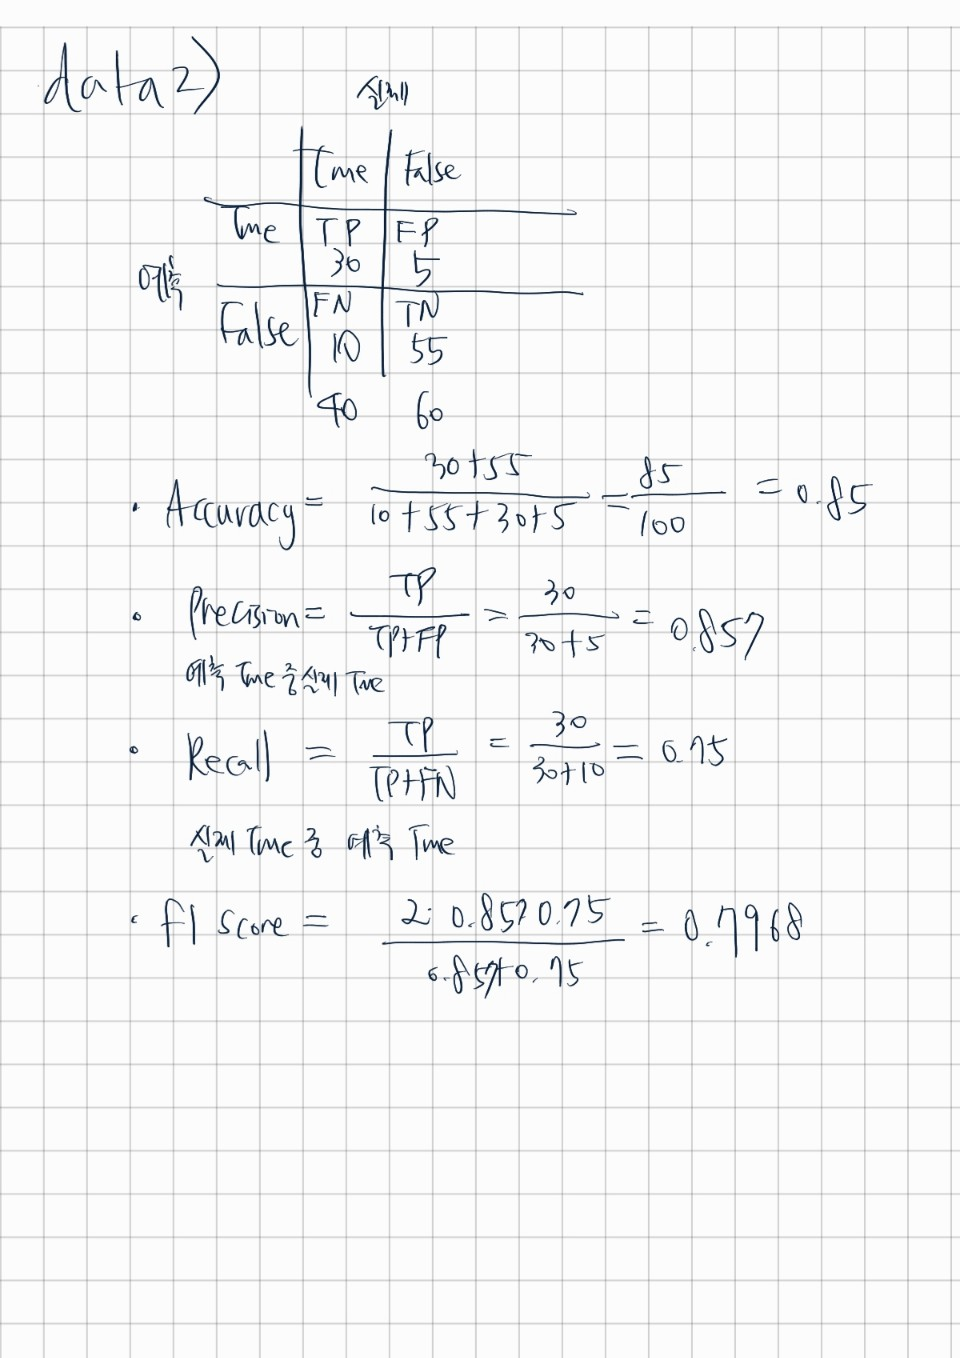 data2)
실제
True False
True TP FP
30 5
예측
False FN TN
10 55
40 60
· Accuracy = 30+55 / 10+55+30+5 = 85 / 100 = 0.85
· Precision = TP / TP+FP = 30 / 30+5 = 0.857
예측 True 중 실제 True
· Recall = TP / TP+FN = 30 / 30+10 = 0.75
실제 True 중 예측 True
· f1 score = 2· 0.857 0.75 / 0.857+0.75 = 0.7968